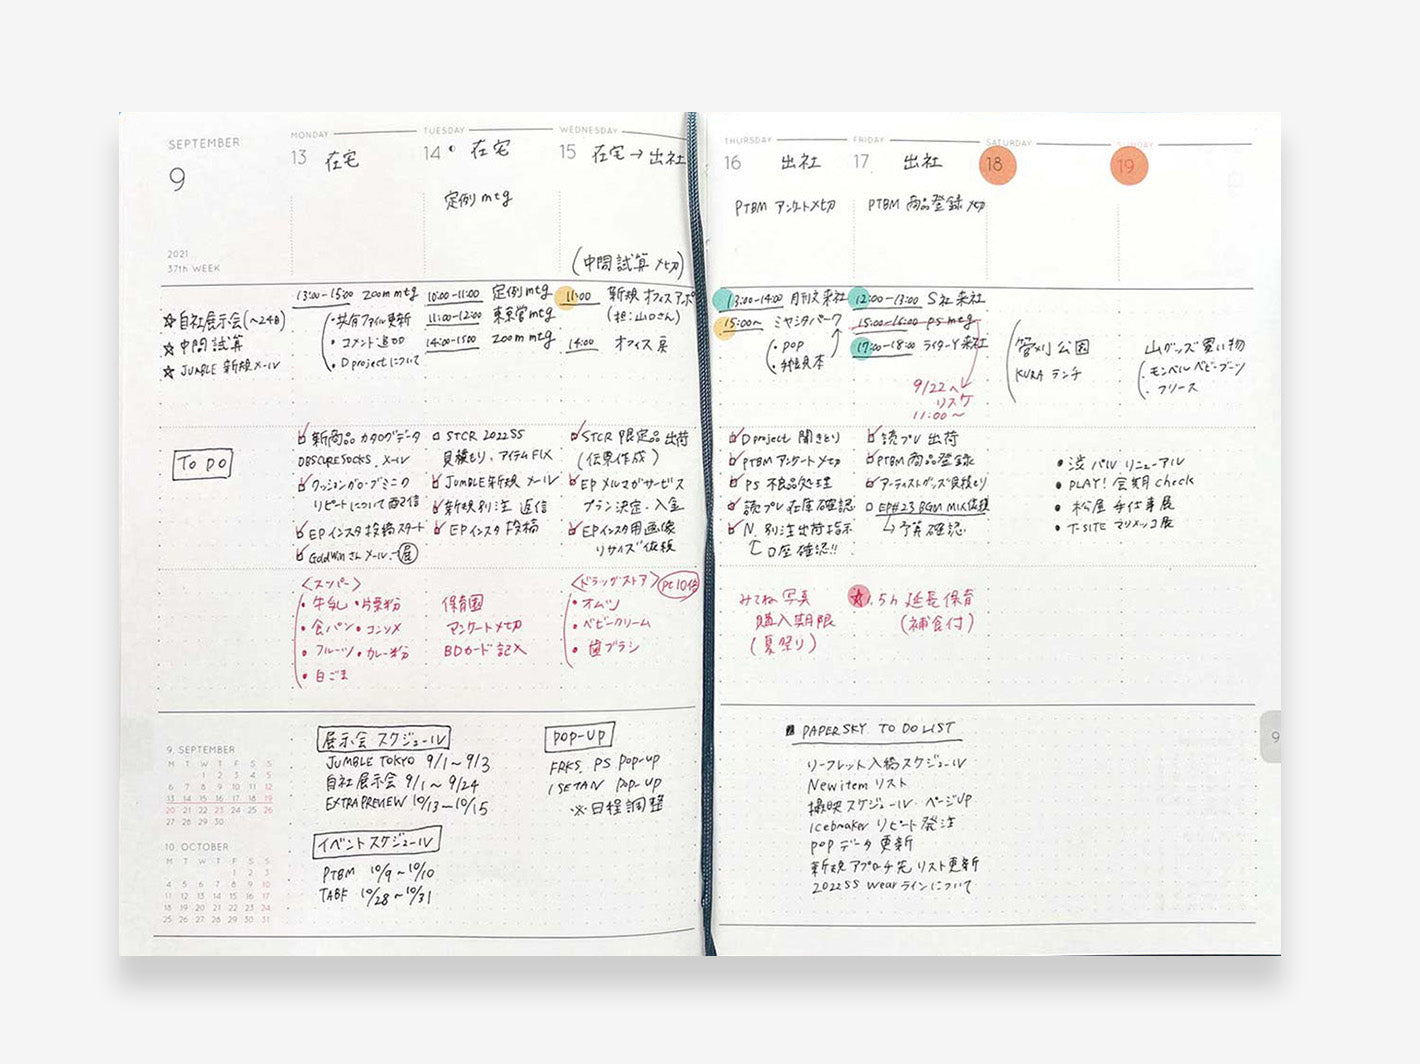 SEPTEMBER
9
2021
37th WEEK
☆自社展示会(~24日)
☆中間試算
☆JUMBLE 新規メール
TO DO
MONDAY
13 在宅
13:00-15:00 zoom mtg
・共有ファイル更新
・コメント追加
・D projectについて
新商品カタログデータ
OBSCURE SOCKS. メール
クッショングローブミニク
リピートについて配信
EPインスタ投稿スタート
GoldWinさんメール→展
<スーパー>
・牛乳 ・片栗粉
・食パン ・コンソメ
・フルーツ ・カレー粉
・白ごま
TUESDAY
14 在宅
定例mtg
10:00-11:00 定例mtg
11:00-12:00 東京営mtg
14:00-15:00 zoom mtg
STCR 2022SS
見積もり、アイテムFIX
JUMBLE新規メール
新規別注 返信
EPインスタ投稿
保育園
アンケート〆切
BDカード記入
WEDNESDAY
15 在宅→出社
(中間試算〆切)
11:00 新規オフィスアポ
(担:山口さん)
14:00 オフィス戻
STCR 限定品出荷
(伝票作成)
EPメルマガサービス
プラン決定・入金
EPインスタ用画像
リサイズ依頼
<ドラッグストア> pt10倍
・オムツ
・ベビークリーム
・歯ブラシ
THURSDAY
16 出社
PTBM アンケート〆切
13:00-14:00 月刊文来社
15:00~ ミヤシタパーク
・POP
・見本
D project 聞きとり
PTBM アンケート〆切
PS 不良品処理
読プレ在庫確認
N. 別注出荷指示
口座確認!!
みてね写真
購入期限
(夏祭り)
FRIDAY
17 出社
PTBM 商品登録〆切
12:00-13:00 S社来社
15:00-16:00 PS mtg
17:00-18:00 ライターY来社
9/22へ
リスケ
11:00~
読プレ出荷
PTBM商品登録
アーティストグッズ見積もり
EP#23 BGM MIX依頼
↳予算確認
☆1.5h 延長保育
(補食付)
SATURDAY
18
菅刈公園
KURA ランチ
SUNDAY
19
山グッズ買い物
・モンベルベビーブーツ
・フリース
・渋パルリニューアル
・PLAY! 会期check
・松屋 手仕事展
・T-SITE マリメッコ展
9. SEPTEMBER
M T W T F S S
1 2 3 4 5
6 7 8 9 10 11 12
13 14 15 16 17 18 19
20 21 22 23 24 25 26
27 28 29 30
10. OCTOBER
M T W T F S S
1 2 3
4 5 6 7 8 9 10
11 12 13 14 15 16 17
18 19 20 21 22 23 24
25 26 27 28 29 30 31
展示会スケジュール
JUMBLE TOKYO 9/1~9/3
自社展示会 9/1~9/24
EXTRAPREVIEW 10/13~10/15
イベントスケジュール
PTBM 10/9~10/10
TABF 10/28~10/31
POP-UP
FRKS. PS POP-UP
ISETAN POP-UP
※日程調整
■ PAPERSKY TO DO LIST
リーフレット入稿スケジュール
New item リスト
撮映スケジュール・ページUP
Icebreaker リピート発注
POPデータ更新
新規アプローチ先リスト更新
2022SS wearラインについて
9